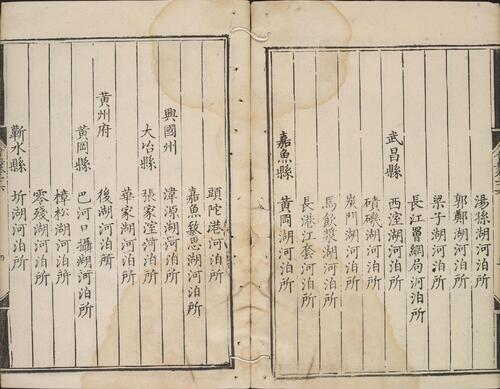 湯孫湖河泊所
郭鄭湖河泊所
梁子湖河泊所
長江罾網局河泊所
武昌縣
西湟湖河泊所
磧磯湖河泊所
炭門湖河泊所
馬飲漿湖河泊所
長港江套河泊所
嘉魚縣
黃岡湖河泊所
頭陀港河泊所
嘉魚敏思湖河泊所
興國州
湋源湖河泊所
大冶縣
張家湟湾河泊所
華家湖河泊所
黃州府
後湖河泊所
黃岡縣
巴河口攝湖河泊所
樟松湖河泊所
零殘湖河泊所
蘄水縣
圻湖河泊所